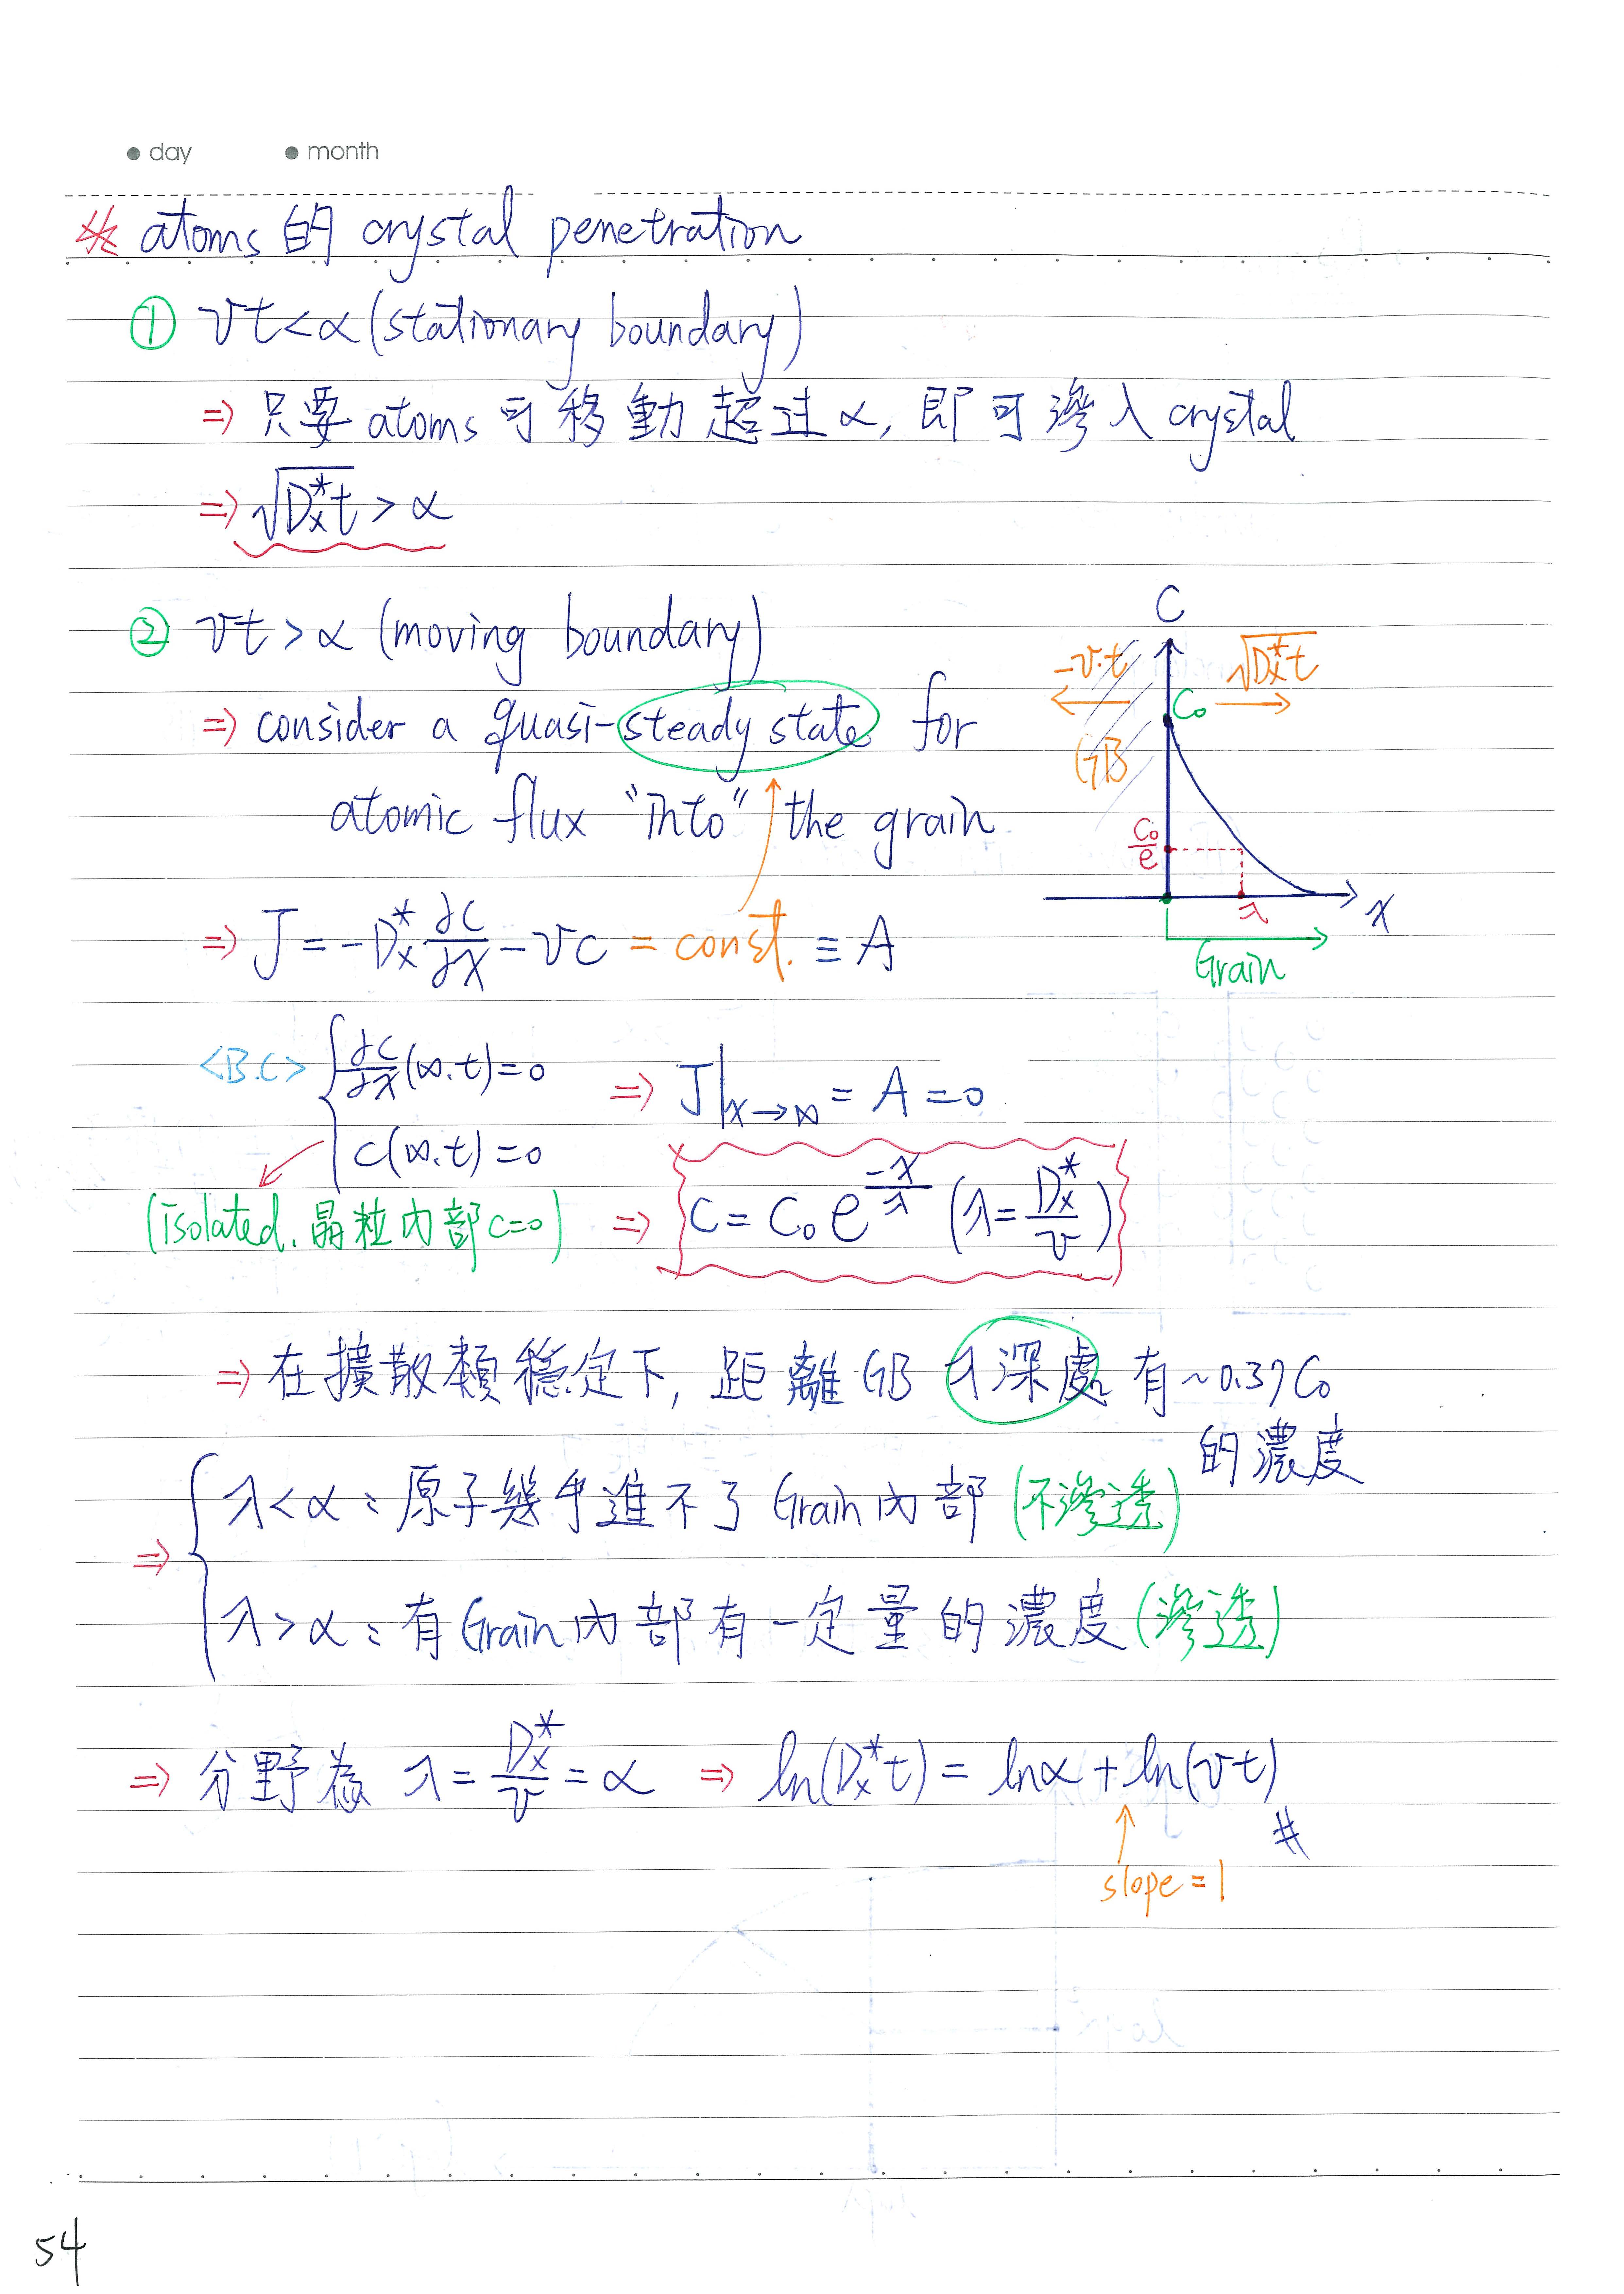 ● day ● month
※ atoms 的 crystal penetration
① vt < α (stationary boundary)
⇒ 只要 atoms 可移動超过 α, 即可滲入 crystal
⇒ √(Dx*t) > α
② vt > α (moving boundary)
⇒ consider a quasi-steady state for
atomic flux "into" the grain
⇒ J = -Dx* ∂c/∂x - vc = const. ≡ A
C
-v·t
√(Dx*t)
C₀
GB
C₀/e
λ
x
Grain
<B.C> { ∂c/∂x (∞.t) = 0 ⇒ J|x→∞ = A = 0
c(∞.t) = 0
(isolated. 晶粒內部 c=0) ⇒ C = C₀ e^(-x/λ) (λ = Dx*/v)
⇒ 在擴散類穩定下, 距離 GB λ深處 有 ~0.37 C₀
的濃度
⇒ { λ < α : 原子幾乎進不了 Grain 內部 (不滲透)
λ > α : 有 Grain 內部有一定量的濃度 (滲透)
⇒ 分野為 λ = Dx*/v = α ⇒ ln(Dx*t) = lnα + ln(vt) #
slope = 1
54